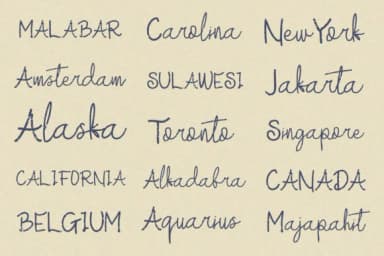 MALABAR Carolina NewYork
Amsterdam SULAWESI Jakarta
Alaska Toronto Singapore
CALIFORNIA Alkadabra CANADA
BELGIUM Aquarius Majapahit